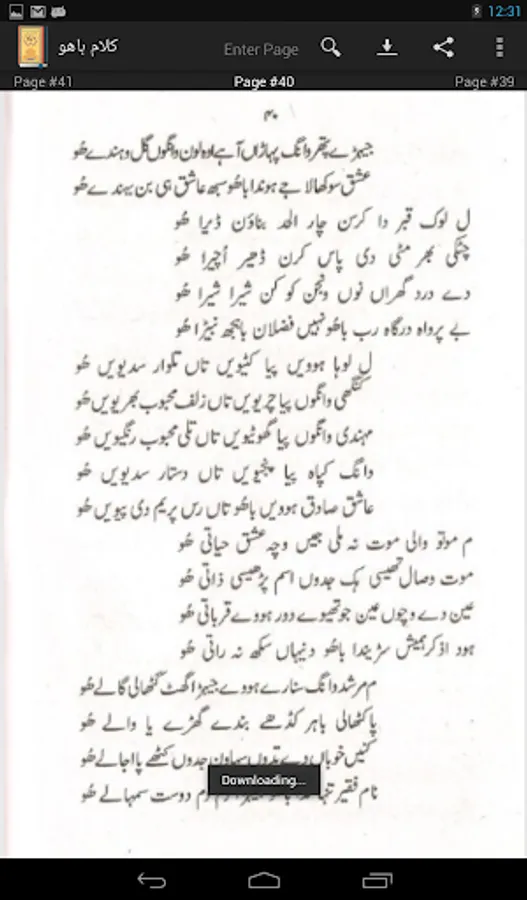 12:31
کلام باھو
Enter Page
Page #41 Page #40 Page #39
۴۰
جیہڑے پتھر وانگ پہاڑاں آہے اوہ لون وانگوں گل وہندے ھُو
عشق سوکھالا جے ہوندا باھُو سبھ عاشق ہی بن بہندے ھُو
ل لوک قبر دا کرسن چار الحد بناؤن ڈیرا ھُو
چٹکی بھر مٹی دی پاس کرن ڈھیر اُچیرا ھُو
دے درد گھراں نوں ونجن کوکن شیرا شیرا ھُو
بے پرواہ درگاہ رب باھُو نہیں فضلاں باہجھ نبیڑا ھُو
ل لوہا ہوویں پیا کٹیویں تاں تلوار سدیویں ھُو
کنگھی وانگوں پیا چریویں تاں زلف محبوب بھریویں ھُو
مہندی وانگوں پیا گھوٹیویں تاں تلی محبوب رنگیویں ھُو
وانگ کپاہ پیا پنجیویں تاں دستار سدیویں ھُو
عاشق صادق ہوویں باھُو تاں رس پریم دی پیویں ھُو
م موتو والی موت نہ ملی جیں وچہ عشق حیاتی ھُو
موت وصال تھیسی ہک جدوں اسم پڑھیسی ذاتی ھُو
عین دے وچوں عین جو تھیوے دور ہووے قرباتی ھُو
ہود اذکر ہمیش سڑیندا باھُو دنیہاں سکھ نہ راتی ھُو
م مرشد وانگ سنارے ہووے جیہڑا گھٹ کٹھالی گالے ھُو
پا کٹھالی باہر کڈھے بندے گھڑے یا والے ھُو
کنیں خوباں دے تدوں سہاون جدوں کٹھے پا اجالے ھُو
نام فقیر دم دوست سمہالے ھُو
Downloading...